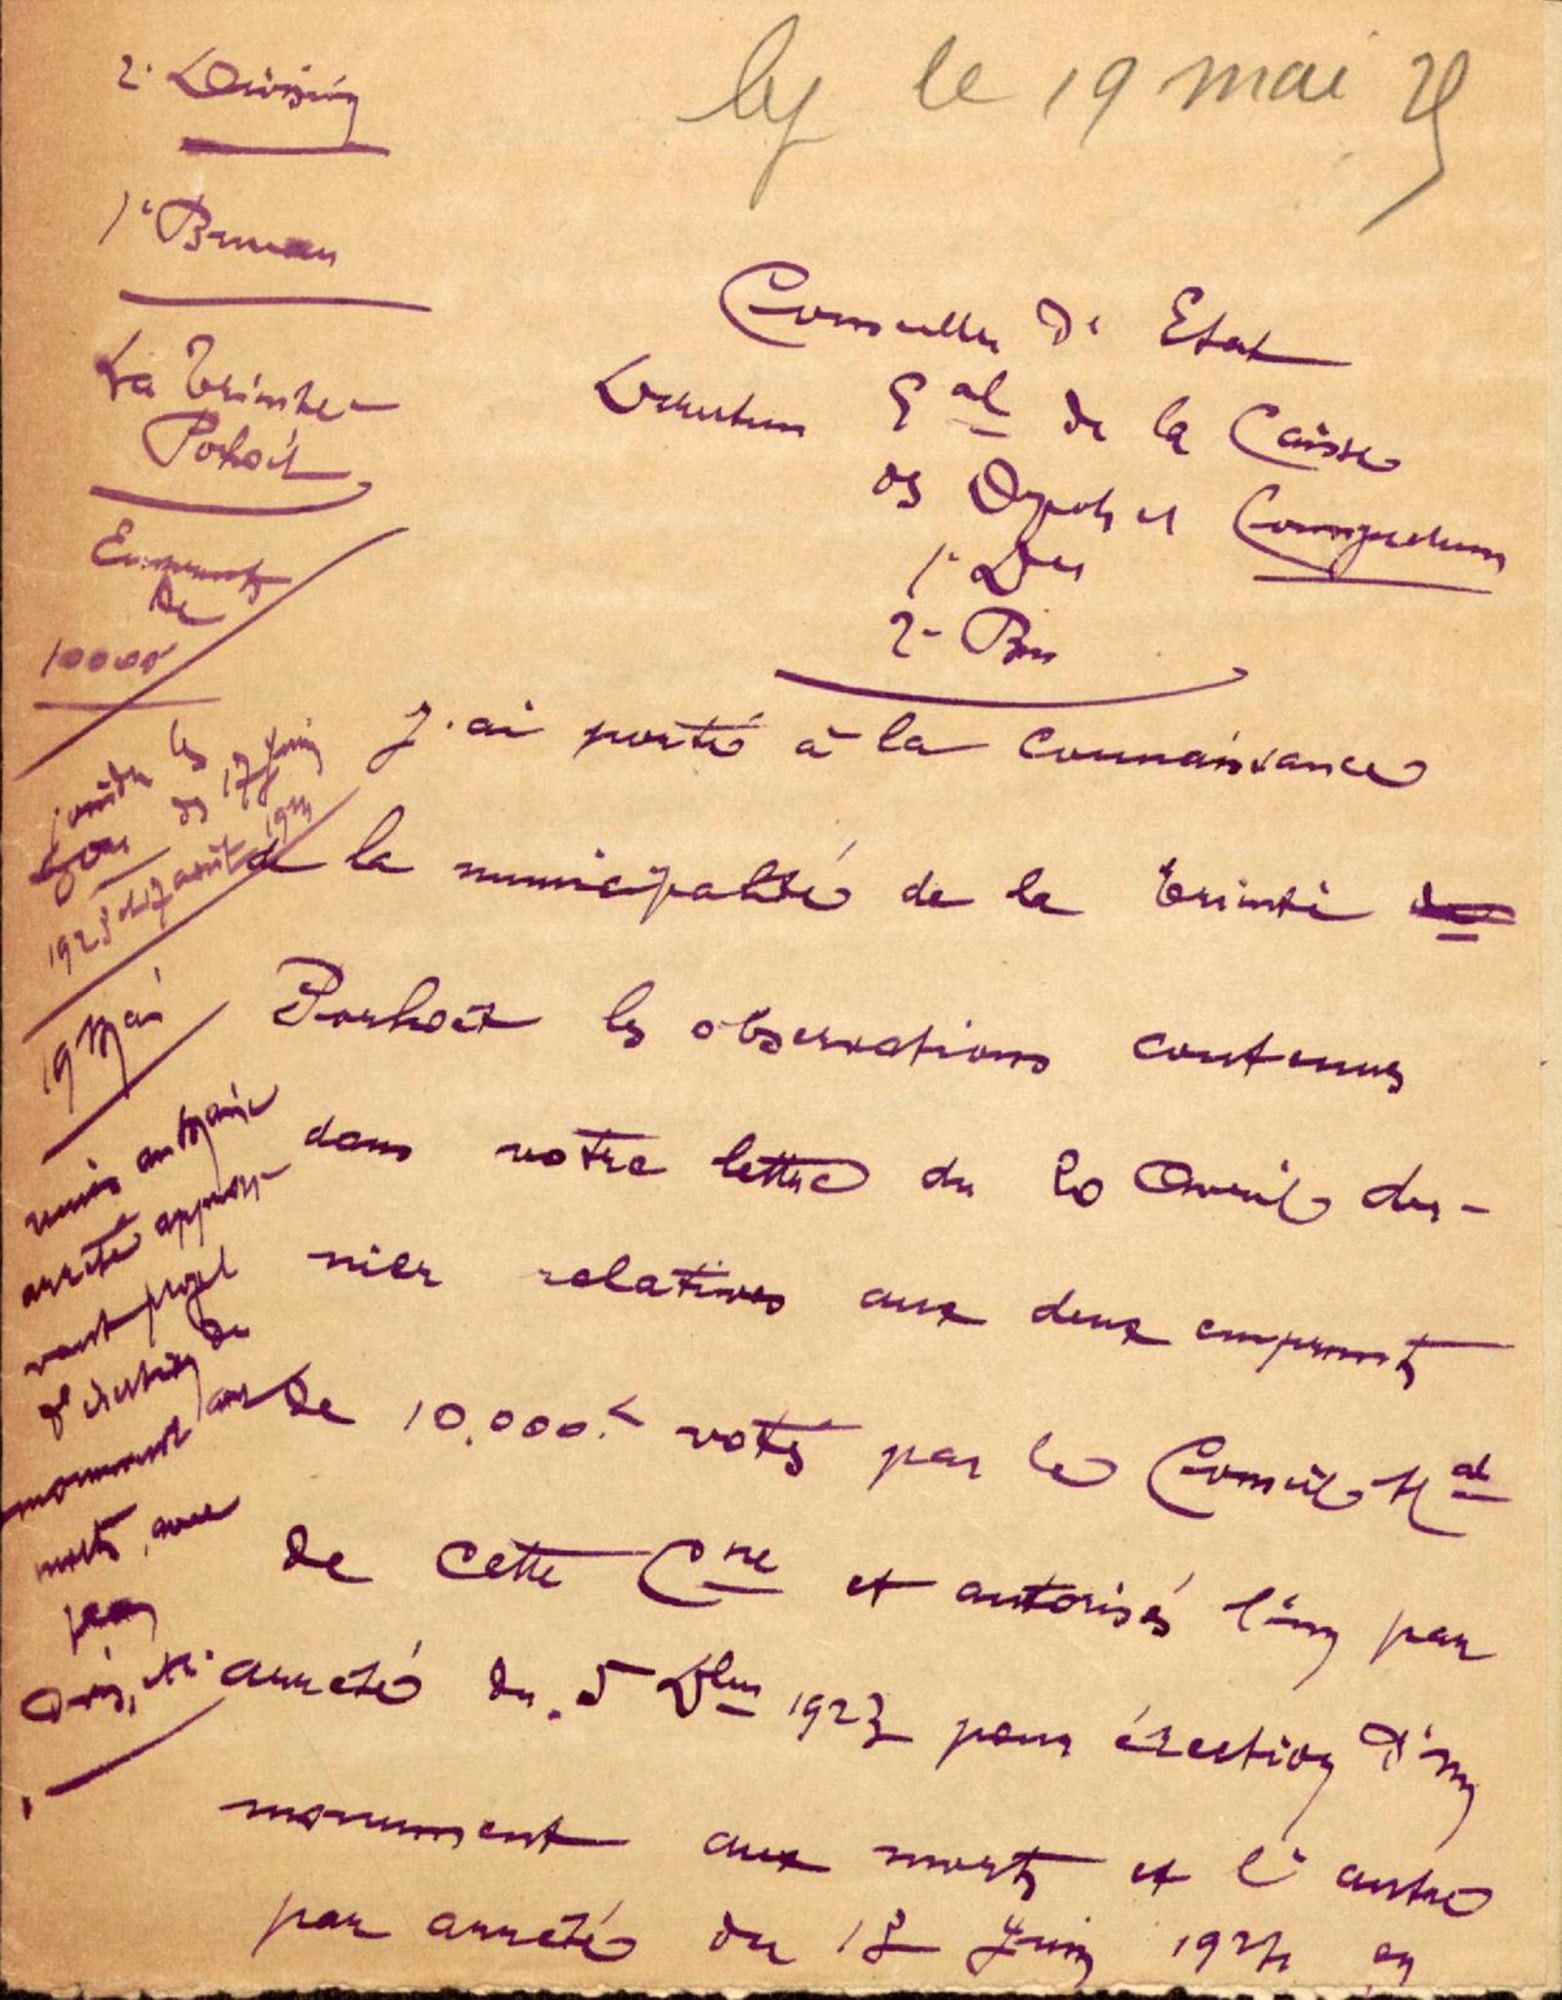 le 19 mai 25
2e Division
1er Bureau
La Trinité-
Porhoët
Emprunts
de
10000
Conseiller d'Etat
Directeur Gal de la Caisse
des Dépots et Consignations
1e Don
2e Bau
J'ai porté à la connaissance
de la municipalité de la Trinité
Porhoët les observations contenues
dans votre lettre du 20 Avril der-
nier relatives aux deux emprunts
de 10.000f votés par le Conseil Mal
de cette Cne et autorisés l'un par
arrêté du 5 Xbre 1923 pour érection d'un
monument aux morts et l'autre
par arrêté du 18 Juin 1924 en
joindre les
du 17 Juin
1923 août
19 Mai
arrêté approu-
vant projet
d'érection du
monument aux
morts, avec